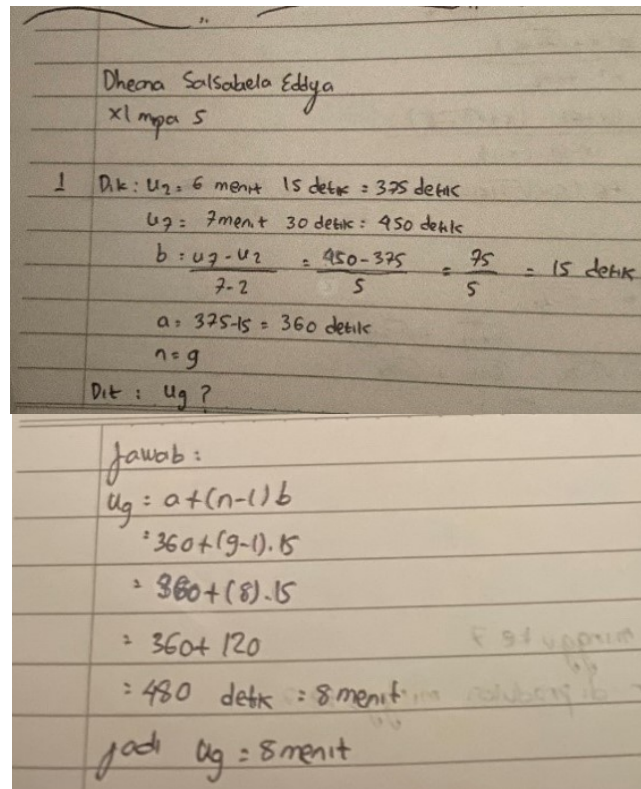 Dheana Salsabela Eddya
XI mpa 5
1 Dik : U2 = 6 menit 15 detik = 375 detik
U7 = 7 menit 30 detik = 450 detik
b = U7 - U2 / 7-2 = 450-375 / 5 = 75 / 5 = 15 detik
a = 375-15 = 360 detik
n = 9
Dit : U9 ?
Jawab :
U9 = a+(n-1)b
= 360+(9-1).15
= 360+(8).15
= 360+ 120
= 480 detik = 8 menit
jadi U9 = 8 menit